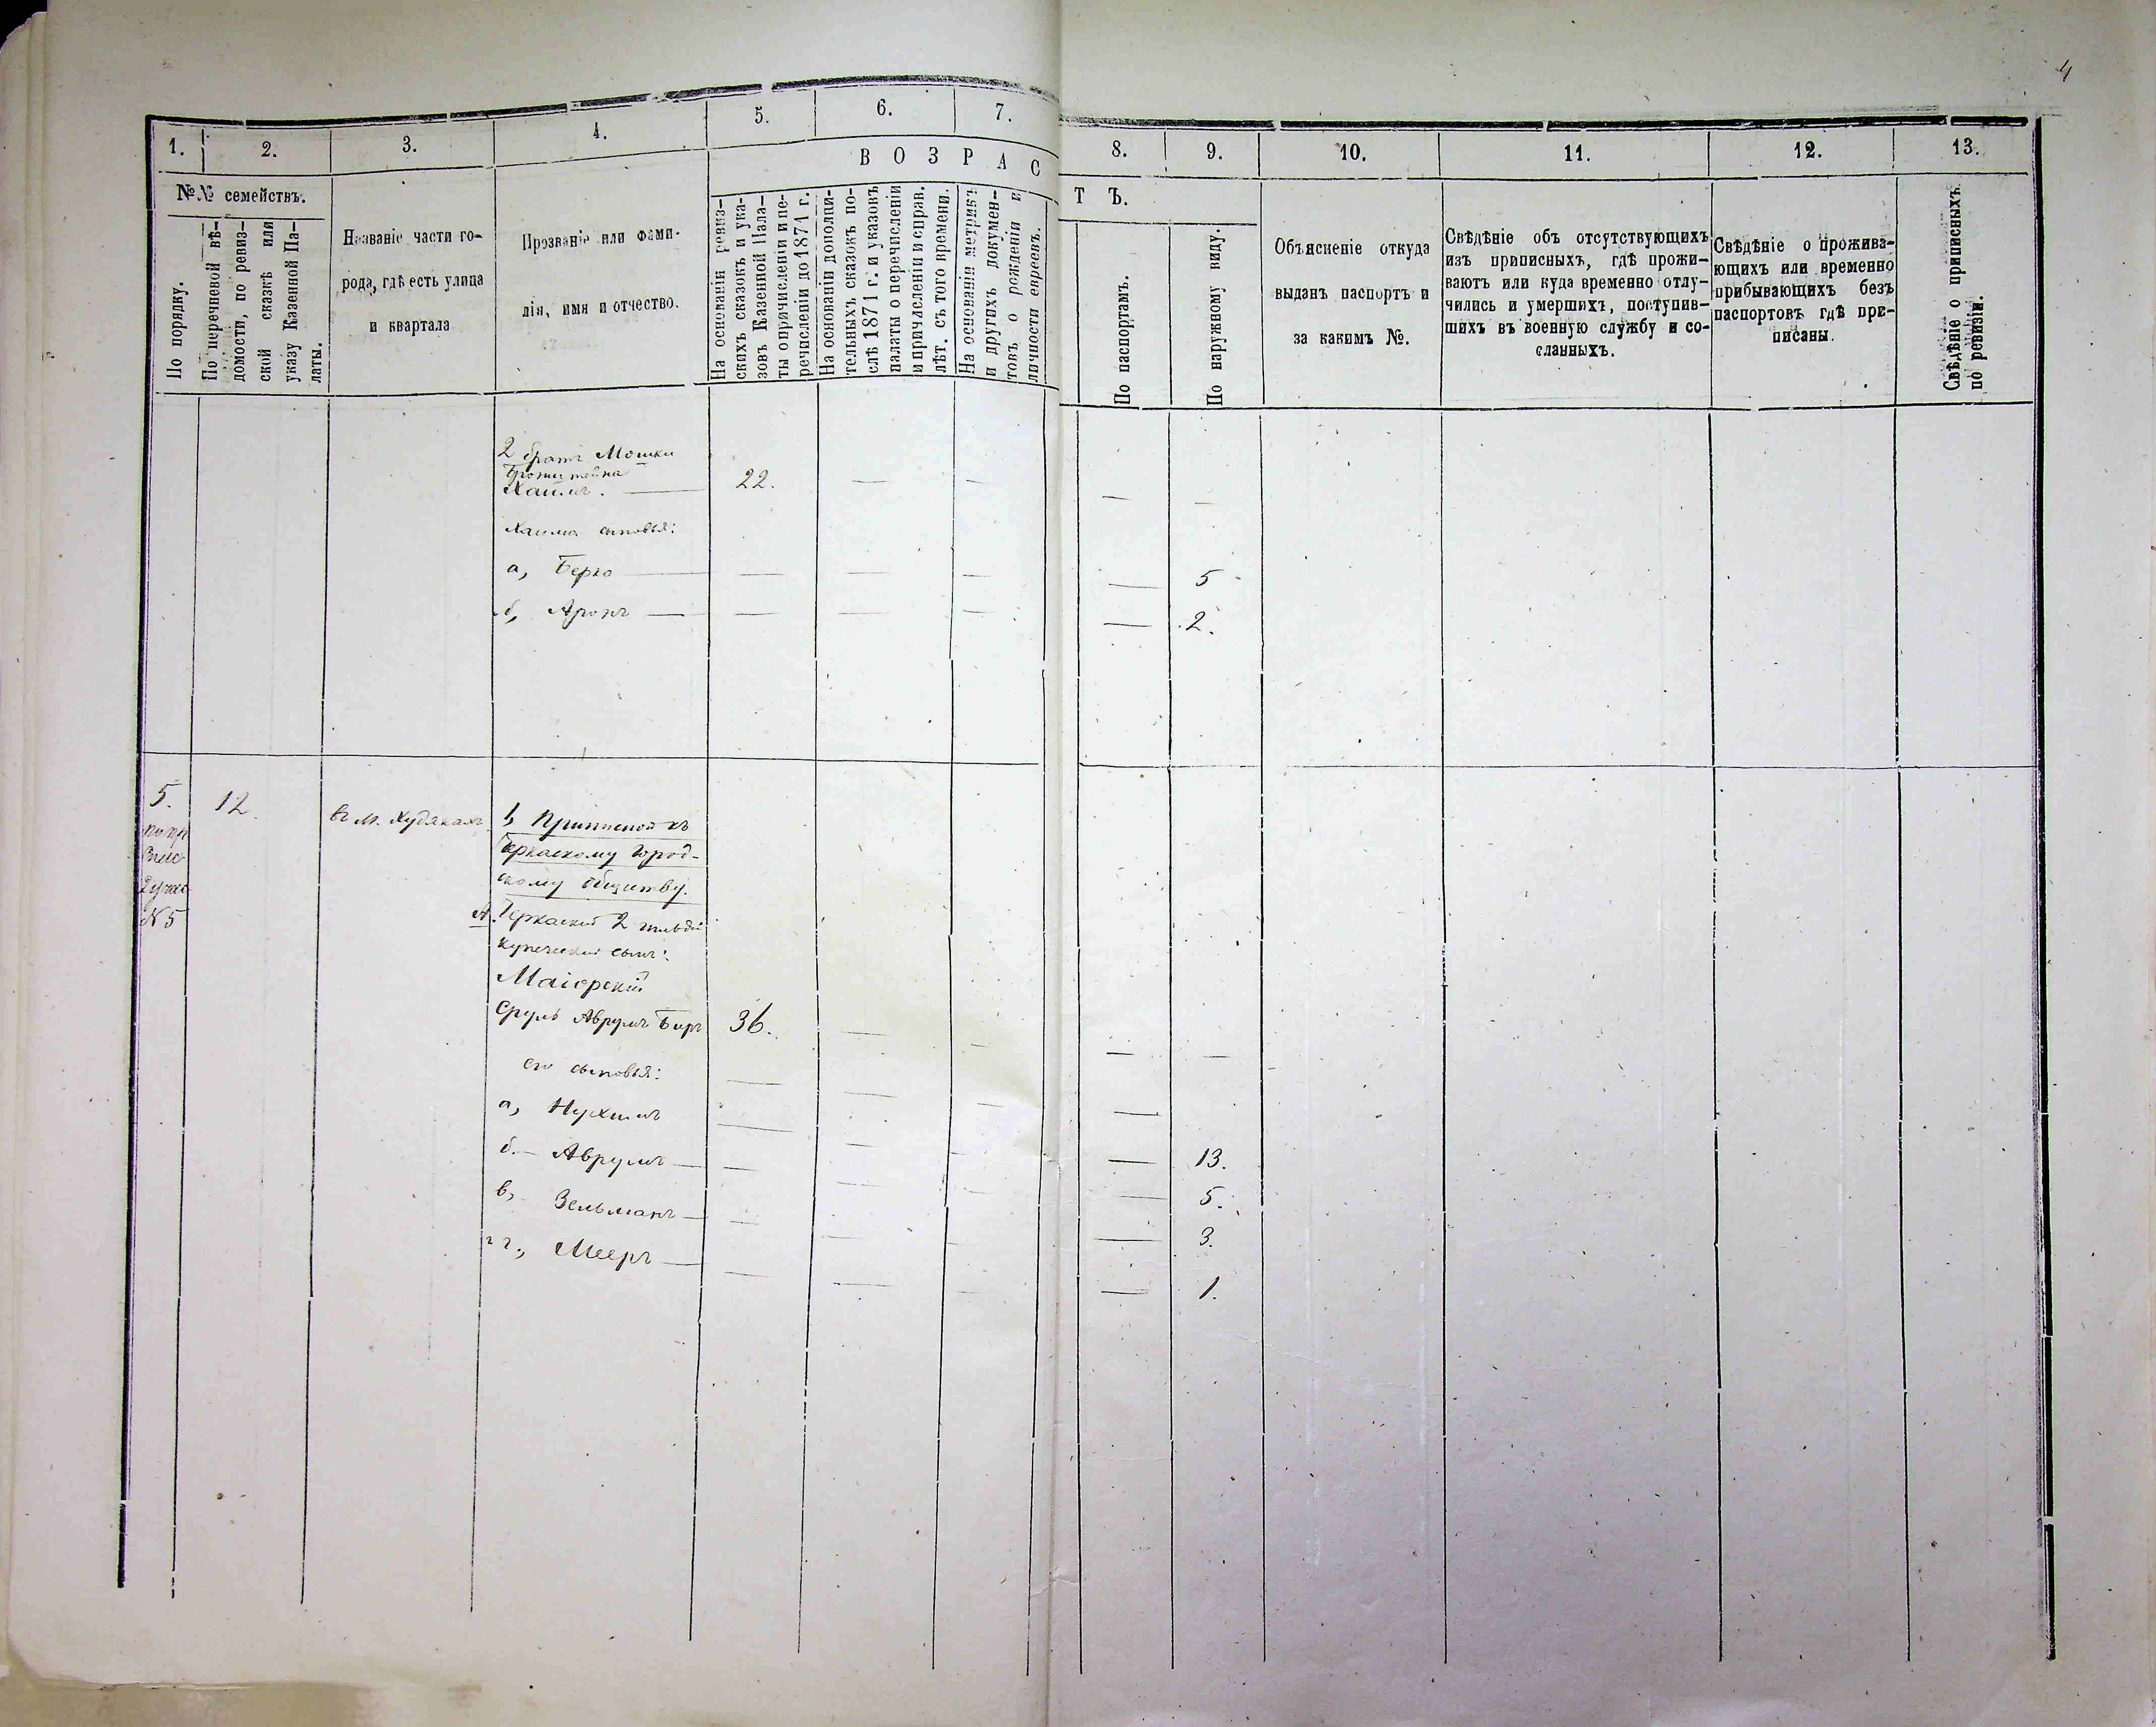 4
1.
2.
3.
4.
5.
6.
7.
8.
9.
10.
11.
12.
13.
№№ семействъ.
По порядку.
По перечневой вѣ-
домости, по ревиз-
ской сказкѣ или
указу Казенной Па-
латы.
Названіе части го-
рода, гдѣ есть улица
и квартала
Прозваніе или фами-
лія, имя и отчество.
ВОЗРАС
ТЪ.
На основаніи ревиз-
скихъ сказокъ и ука-
зовъ Казенной Пала-
ты о причисленіи и пе-
речисленіи до 1871 г.
На основаніи дополни-
тельныхъ сказокъ по-
слѣ 1871 г. и указовъ
палаты о перечисленіи
и причисленіи и справ.
лѣт. съ того времени.
На основаніи метрикъ
и другихъ докумен-
товъ о рожденіи и
личности евреевъ.
По паспортамъ.
По наружному виду.
Объясненіе откуда
выданъ паспортъ и
за какимъ №.
Свѣдѣніе объ отсутствующихъ
изъ приписныхъ, гдѣ прожи-
ваютъ или куда временно отлу-
чились и умершихъ, поступив-
шихъ въ военную службу и со-
сланныхъ.
Свѣдѣніе о прожива-
ющихъ или временно
прибывающихъ безъ
паспортовъ гдѣ при-
писаны.
Свѣдѣніе о приписныхъ
по ревизіи.
2 братъ Мошки
Хаимъ. — 22. — — — —
Хаима сыновья:
а, Берко — — — — — 5
б, Аронъ — — — — — 2.
5. 12. въ м. Худякахъ
№ 5
Приписной къ
Черкаскому Город-
скому обществу.
А. Черкаскій 2 гильдіи
купеческій сынъ:
Маіорскій
Сруль Аврумъ Беръ 36. — — — —
его сыновья:
а, Нухимъ — — — — 13.
б. Аврумъ — — — — 5.
в, Зельманъ — — — — 3.
г., Мееръ — — — — 1.